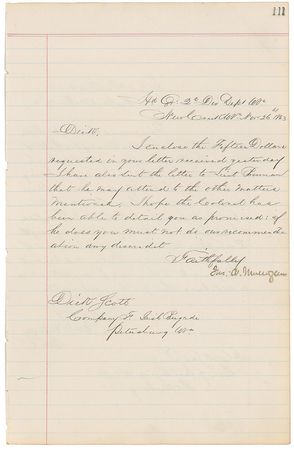 111
Hd Qr 2d Div Dept W Va
New Creek W Va Nov 26" 1863
Dick,
I enclose the Fifteen Dollars
requested in your letter received yesterday
I have also sent the letter to Lieut
that he may attend to the other matters
mentioned. I hope the Colonel has
been able to detail you as promised: if
he does you must not do our recommend
ation any discredit
Faithfully
Jas. A. Mulligan
Dick Scott
Company F Irish Brigade
Petersburg W Va